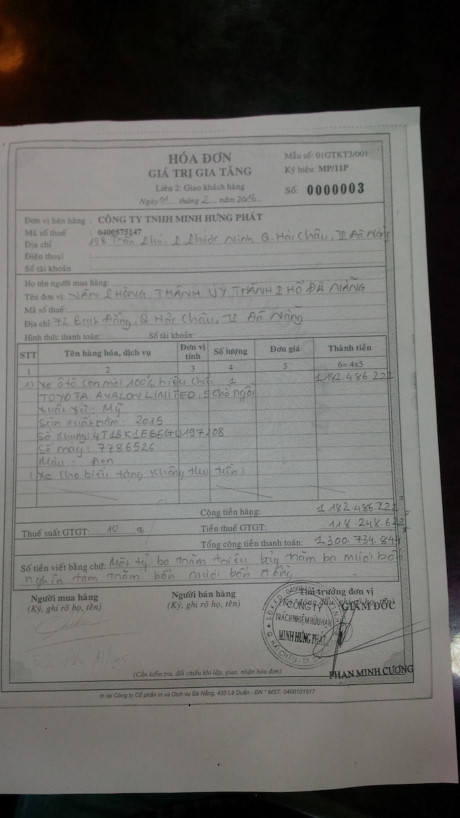 HÓA ĐƠN
GIÁ TRỊ GIA TĂNG
Liên 2: Giao khách hàng
Mẫu số: 01GTKT3/001
Ký hiệu: MP/11P
Số: 0000003
Ngày tháng 2 năm
Đơn vị bán hàng: CÔNG TY TNHH MINH HƯNG PHÁT
Mã số thuế 0400575147
Địa chỉ Q. Hải Châu, TP Đà Nẵng
Điện thoại
Số tài khoản
Họ tên người mua hàng:
Tên đơn vị: VĂN PHÒNG THÀNH ỦY THÀNH PHỐ ĐÀ NẴNG
Mã số thuế:
Địa chỉ 72 Bạch Đằng, Q Hải Châu, TP Đà Nẵng
Hình thức thanh toán: Số tài khoản:
STT Tên hàng hóa, dịch vụ Đơn vị tính Số lượng Đơn giá Thành tiền
1 2 3 4 5 6= 4x5
1) Xe ô tô con mới 100% hiệu 1 1.182.486.222
TOYOTA AVALON LIMITED, 5 chỗ ngồi
Xuất xứ: Mỹ
Sản xuất năm: 2015
Số khung: 4T1BK1EB6GU197208
Số máy: 7786526
Màu: Đen
Xe cho biếu tặng không thu tiền
Cộng tiền hàng: 1.182.486.222
Thuế suất GTGT: 10 % Tiền thuế GTGT: 118.248.622
Tổng cộng tiền thanh toán: 1.300.734.844
Số tiền viết bằng chữ: Một tỷ ba trăm triệu bảy trăm ba mươi bốn
nghìn tám trăm bốn mươi bốn đồng
Người mua hàng
(Ký, ghi rõ họ, tên)
Người bán hàng
(Ký, ghi rõ họ, tên)
Thủ trưởng đơn vị
GIÁM ĐỐC
CÔNG TY
TRÁCH NHIỆM HỮU HẠN
MINH HƯNG PHÁT
PHAN MINH CƯƠNG
(Cần kiểm tra, đối chiếu khi lập, giao, nhận hóa đơn)
In tại Công ty Cổ phần in và Dịch vụ Đà Nẵng, 420 Lê Duẩn - ĐN * MST: 0400101517